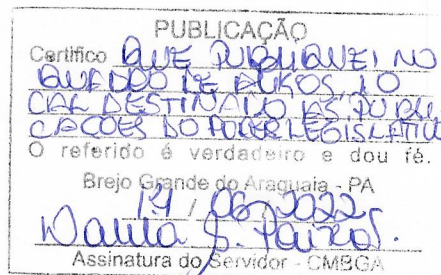 PUBLICAÇÃO
Certifico QUE PUBLIQUEI NO
QUADRO DE AVISOS, LO
CAL DESTINADO AS PUBLI
CAÇOES DO PODER LEGISLATIVO
O referido é verdadeiro e dou fé.
Brejo Grande do Araguaia - PA
/ 06 / 2022
S.
Assinatura do Servidor - CMBGA